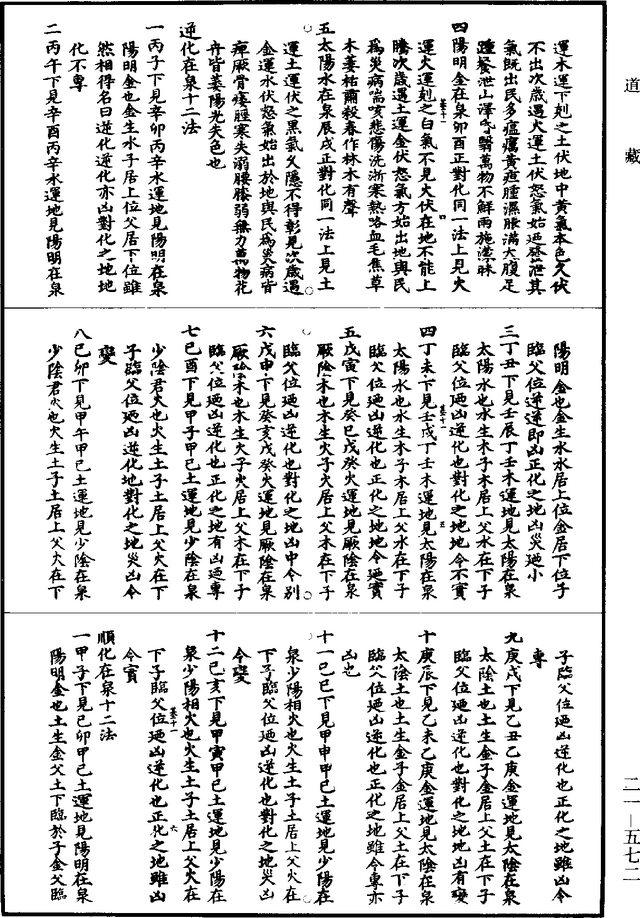 道藏
運水運下剋之土伏地中黃氣本色久伏
不出次歲遇火運土伏怒氣始迺發泄其
氣既出民多瘟癘黃疸腫濕脹滿大腹足
腫飱泄山澤昏翳萬物不鮮雨施濛昧
四陽明金在泉卯酉正對化同一法上見火
運火運剋之白氣不見火伏在地不能上
騰次歲遇土運金伏怒氣方始出地與民
為災病喘欬悲傷洗淅寒熱咯血毛焦草
木萎枯霜殺春作林木有聲
五太陽水在泉辰戌正對化同一法上見土
運土運伏之黑氣久隱不得彰見次歲遇
金運水伏怒氣始出於地與民為災病皆
痺厥骨痿脛寒失溺腰膝弱無力萬物花
卉皆萎陽光失色也
逆化在泉十二法
一丙子下見辛卯丙辛水運地見陽明在泉
陽明金也金生水子居上位父居下位雖
然相得名曰逆化逆化亦凶對化之地地
化不專
二丙午下見辛酉丙辛水運地見陽明在泉
陽明金也金生水水居上位金居下位子
臨父位逆逆即凶正化之地凶災迺小
三丁丑下見壬辰丁壬木運地見太陽在泉
太陽水也水生木子木居上父水在下子
臨父位迺凶逆化也對化之地地令不實
四丁未下見壬戌丁壬木運地見太陽在泉
太陽水也水生木子木居上父水在下子
臨父位迺凶逆化也正化之地地令迺實
五戊寅下見癸巳戊癸火運地見厥陰在泉
厥陰木也木生火子火居上父木在下子
臨父位迺凶逆化也對化之地凶中令別
六戊申下見癸亥戊癸火運地見厥陰在泉
厥陰木也木生火子火居上父木在下子
臨父位迺凶逆化也正化之地有凶迺專
七己酉下見甲子甲己土運地見少陰在泉
少陰君火也火生土子土居上父火在下
子臨父位迺凶逆化地對化之地災凶令
變
八己卯下見甲午甲己土運地見少陰在泉
少陰君火也火生土子土居上父火在下
子臨父位迺凶逆化也正化之地雖凶令
專
九庚戌下見乙丑乙庚金運地見太陰在泉
太陰土也土生金子金居上父土在下子
臨父位迺凶逆化也對化之地地凶有變
十庚辰下見乙未乙庚金運地見太陰在泉
太陰土也土生金子金居上父土在下子
臨父位迺凶逆化也正化之地雖令專亦
凶也
十一己巳下見甲申甲己土運地見少陽在
泉少陽相火也火生土子土居上父火在
下子臨父位迺凶逆化也對化之地災凶
令變
十二己亥下見甲寅甲己土運地見少陽在
泉少陽相火也火生土子土居上父火在
下子臨父位迺凶逆化也正化之地雖凶
令實
順化在泉十二法
一甲子下見己卯甲己土運地見陽明在泉
陽明金也土生金父土下臨於子金父臨
二一—五七二